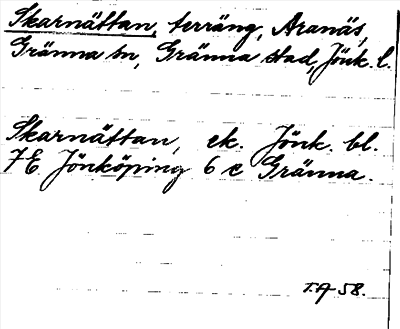 Skarnättan, terräng, Aranäs,
Gränna sn, Gränna stad, Jönk. l.
Skarnättan, ek. Jönk. bl.
7E Jönköping 6 c Gränna.
T.A 58.